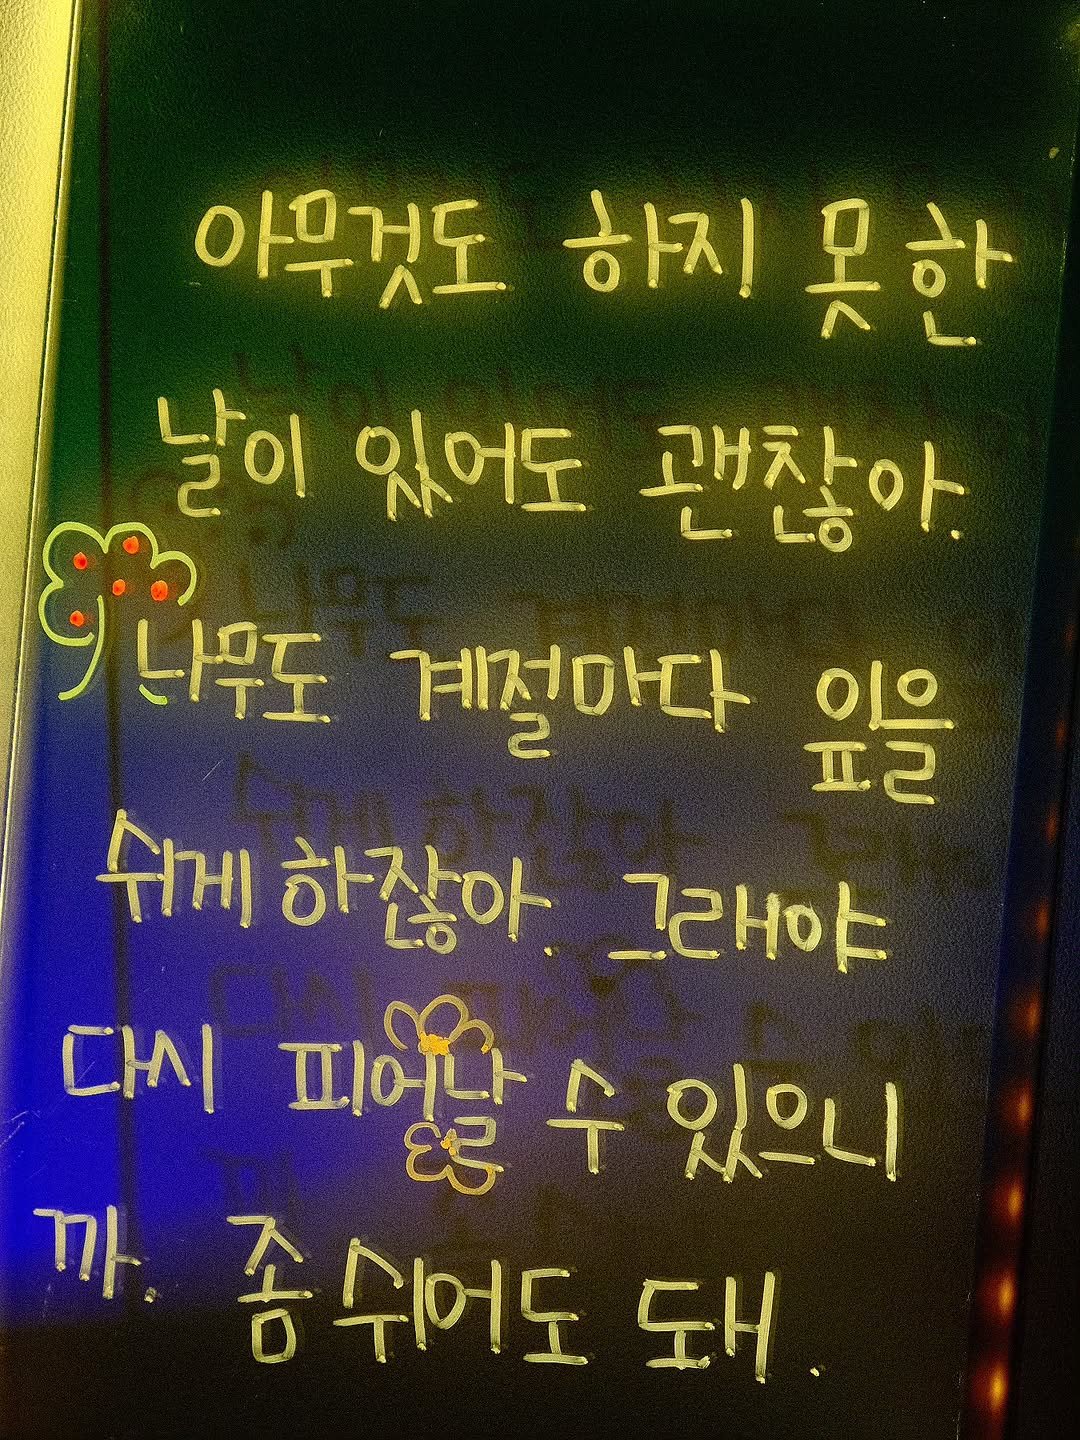 아무것도 하지 못한
날이 있어도 괜찮아.
나무도 계절마다 잎을
쉬게 하잖아. 그래야
다시 피어날 수 있으니
까. 좀 쉬어도 돼.